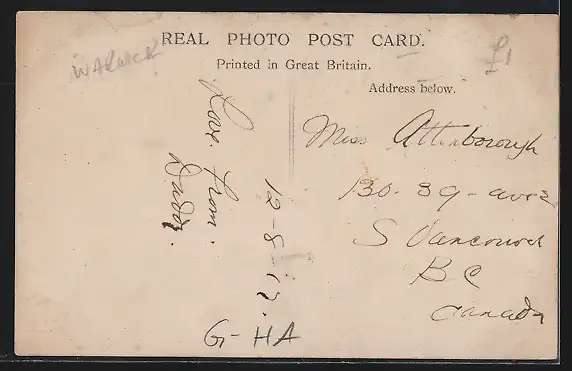 WARWICK
£1
REAL PHOTO POST CARD.
Printed in Great Britain.
Address below.
Love from.
Daddy.
12-8-17.
G-HA
Miss Attenborough
130. 39-ave
S Vancouver
BC
Canada